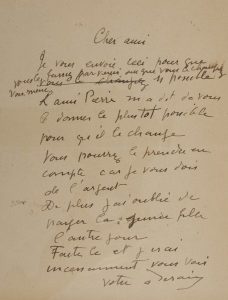 Cher ami
Je vous envoie ceci pour que
vous le fassiez parvenir ou que vous le changiez
vous même si possible
L'ami Pierre m'a dit de vous
le donner le plus tôt possible
pour qu'il le change
Vous pourrez le prendre en
compte car je vous dois
de l'argent
De plus j'ai oublié de
payer la fille
l'autre jour
Faites le et j'irai
incessamment vous voir
votre